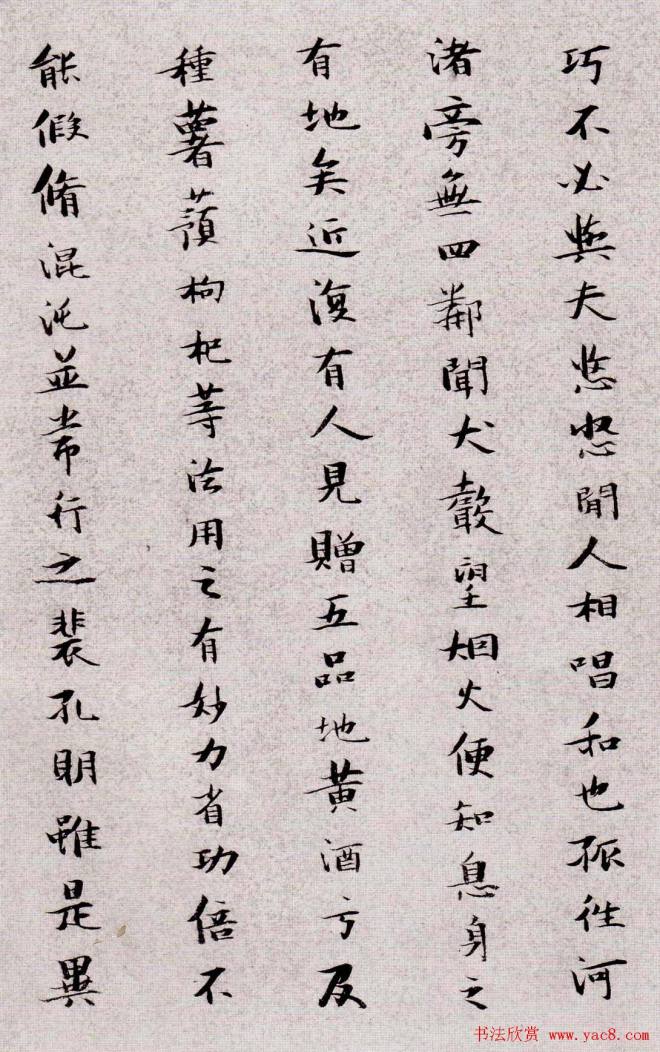 巧不必與夫悠悠閒人相唱和也孤徃河
渚旁無四鄰聞犬聲望烟火便知息身之
有地矣近復有人見贈五品地黃酒方及
種薯蕷枸杞等法用之有妙力省功倍不
能假脩混沌並常行之裴孔明雖是異
书法欣赏 www.yac8.com